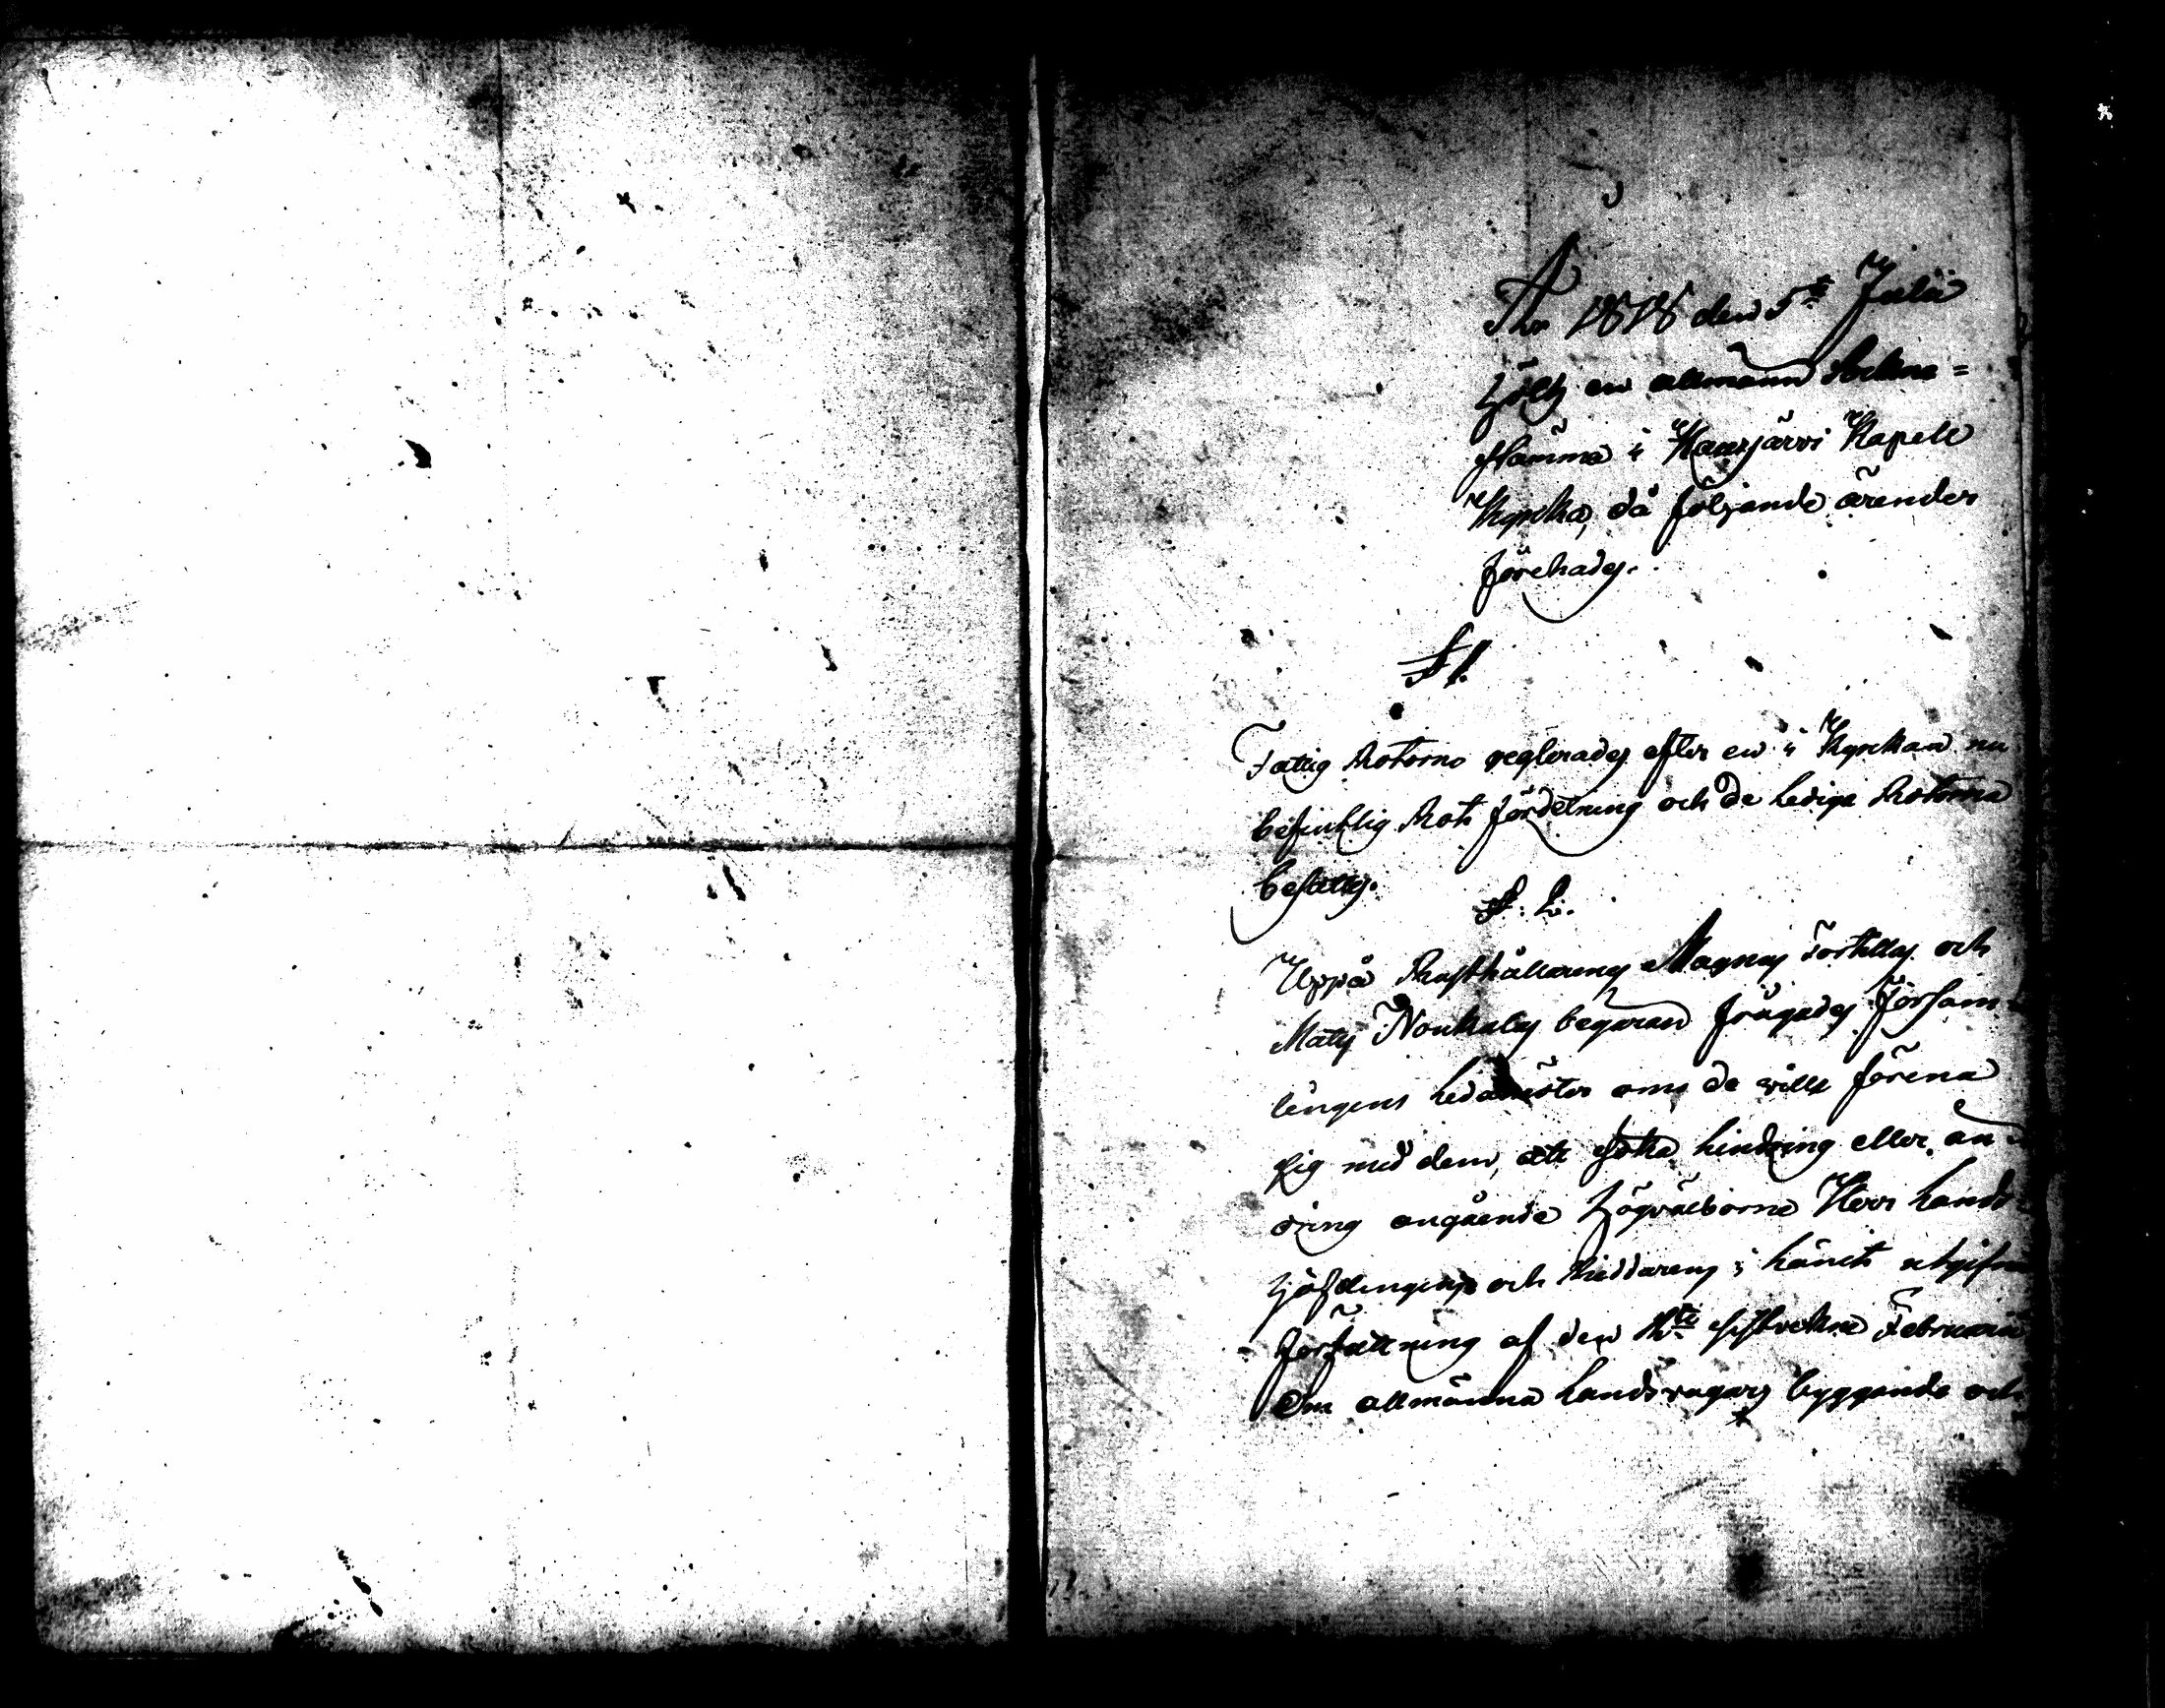 År 1818 den 5te Julii
hölts en allmänn Sockne=
stämma i Kaarjärvi Kapell
Kyrka, då följande ärender
förehades.
§ 1.
Fattig Rotorne reglerades efter en i Kyrkan nu
befintlig Rote fördelning och de lediga Rotorna
besattes.
§. 2.
Uppå Rusthållarens Magnus Tortillas och
Mats Noukalas begäran frågades Försam-
lingens ledamöter om de ville förena
sig med dem, att söka hindring eller än-
dring angående Högvälborne Herr Lands-
höfdingens och Riddarens i Länet utgifne
författning af den sistvekne Februarii
Om allmänna Landsvägars byggande och